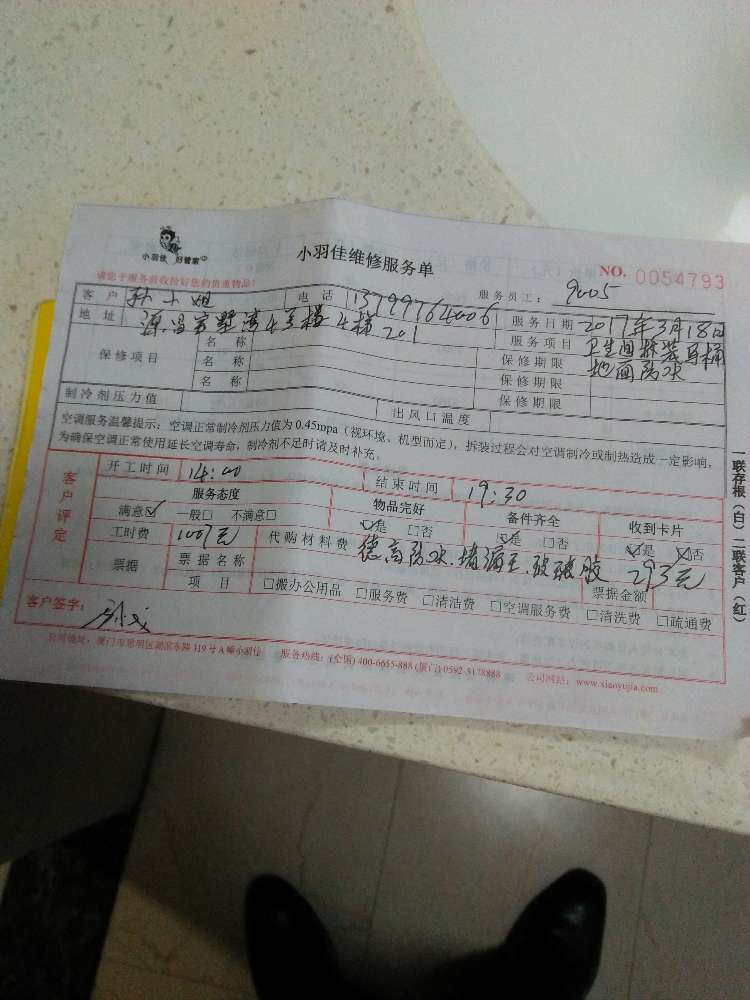 小羽佳 好管家
小羽佳维修服务单
NO. 0054793
请您于服务前收捡好您的贵重物品!
服务员工: 9005
客户 孙小姐 电话 13799764006 服务日期 2017年3月18日
地址 源昌宝墅湾4号楼4梯201 服务项目 卫生间拆装马桶
地面防水
保修项目 名称 保修期限
名称 保修期限
名称 保修期限
制冷剂压力值 出风口温度
空调服务温馨提示: 空调正常制冷剂压力值为0.45mpa(视环境、机型而定),拆装过程会对空调制冷或制热造成一定影响,
为确保空调正常使用延长空调寿命,制冷剂不足时请及时补充。
客户评定
开工时间 14:00 结束时间 19:30
服务态度 物品完好 备件齐全 收到卡片
满意☑ 一般□ 不满意□ ☑是 □否 ☑是 □否 ☑是 ☒否
工时费 1007元 代购材料费 德高防水.堵漏王.玻璃胶 293元
票据 票据名称 票据金额
项目 □搬办公用品 □服务费 □清洁费 □空调服务费 □清洗费 □疏通费
客户签字:
公司地址: 厦门市思明区湖滨东路319号A幢小羽佳 服务热线: (全国) 400-6655-888 (厦门) 0592-5178888 公司网站: www.xiaoyujia.com
一联存根(白) 二联客户(红)